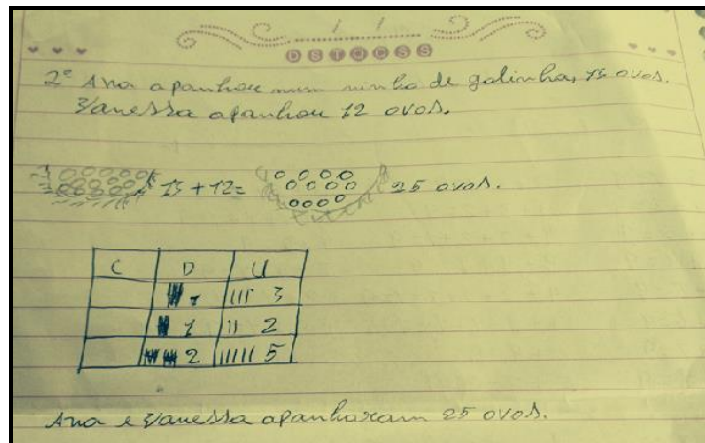 D S T Q Q S S
2ª Ana apanhou num ninho de galinha, 13 ovos.
Vanessa apanhou 12 ovos.
13 + 12 = 25 ovos.
C D U
1 3
1 2
2 5
Ana e Vanessa apanharam 25 ovos.